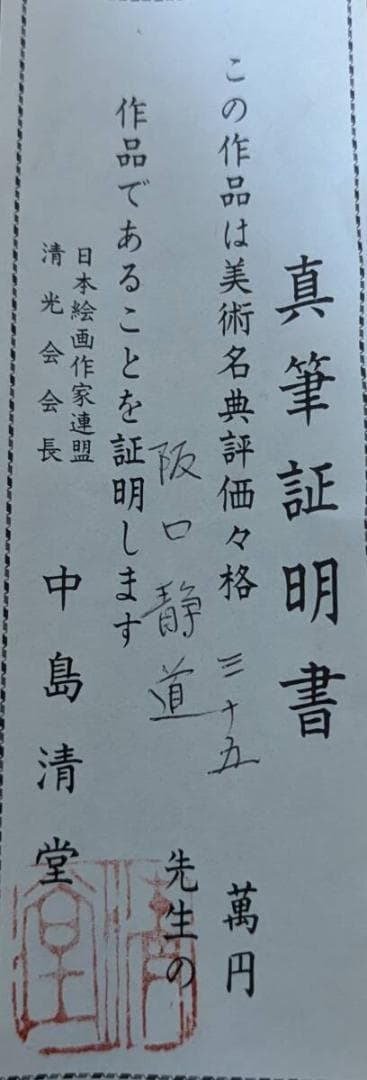 真筆証明書
この作品は美術名典評価々格 三十五 萬円
阪口静道 先生の
作品であることを証明します
日本絵画作家連盟
清光会会長
中島清堂
清堂